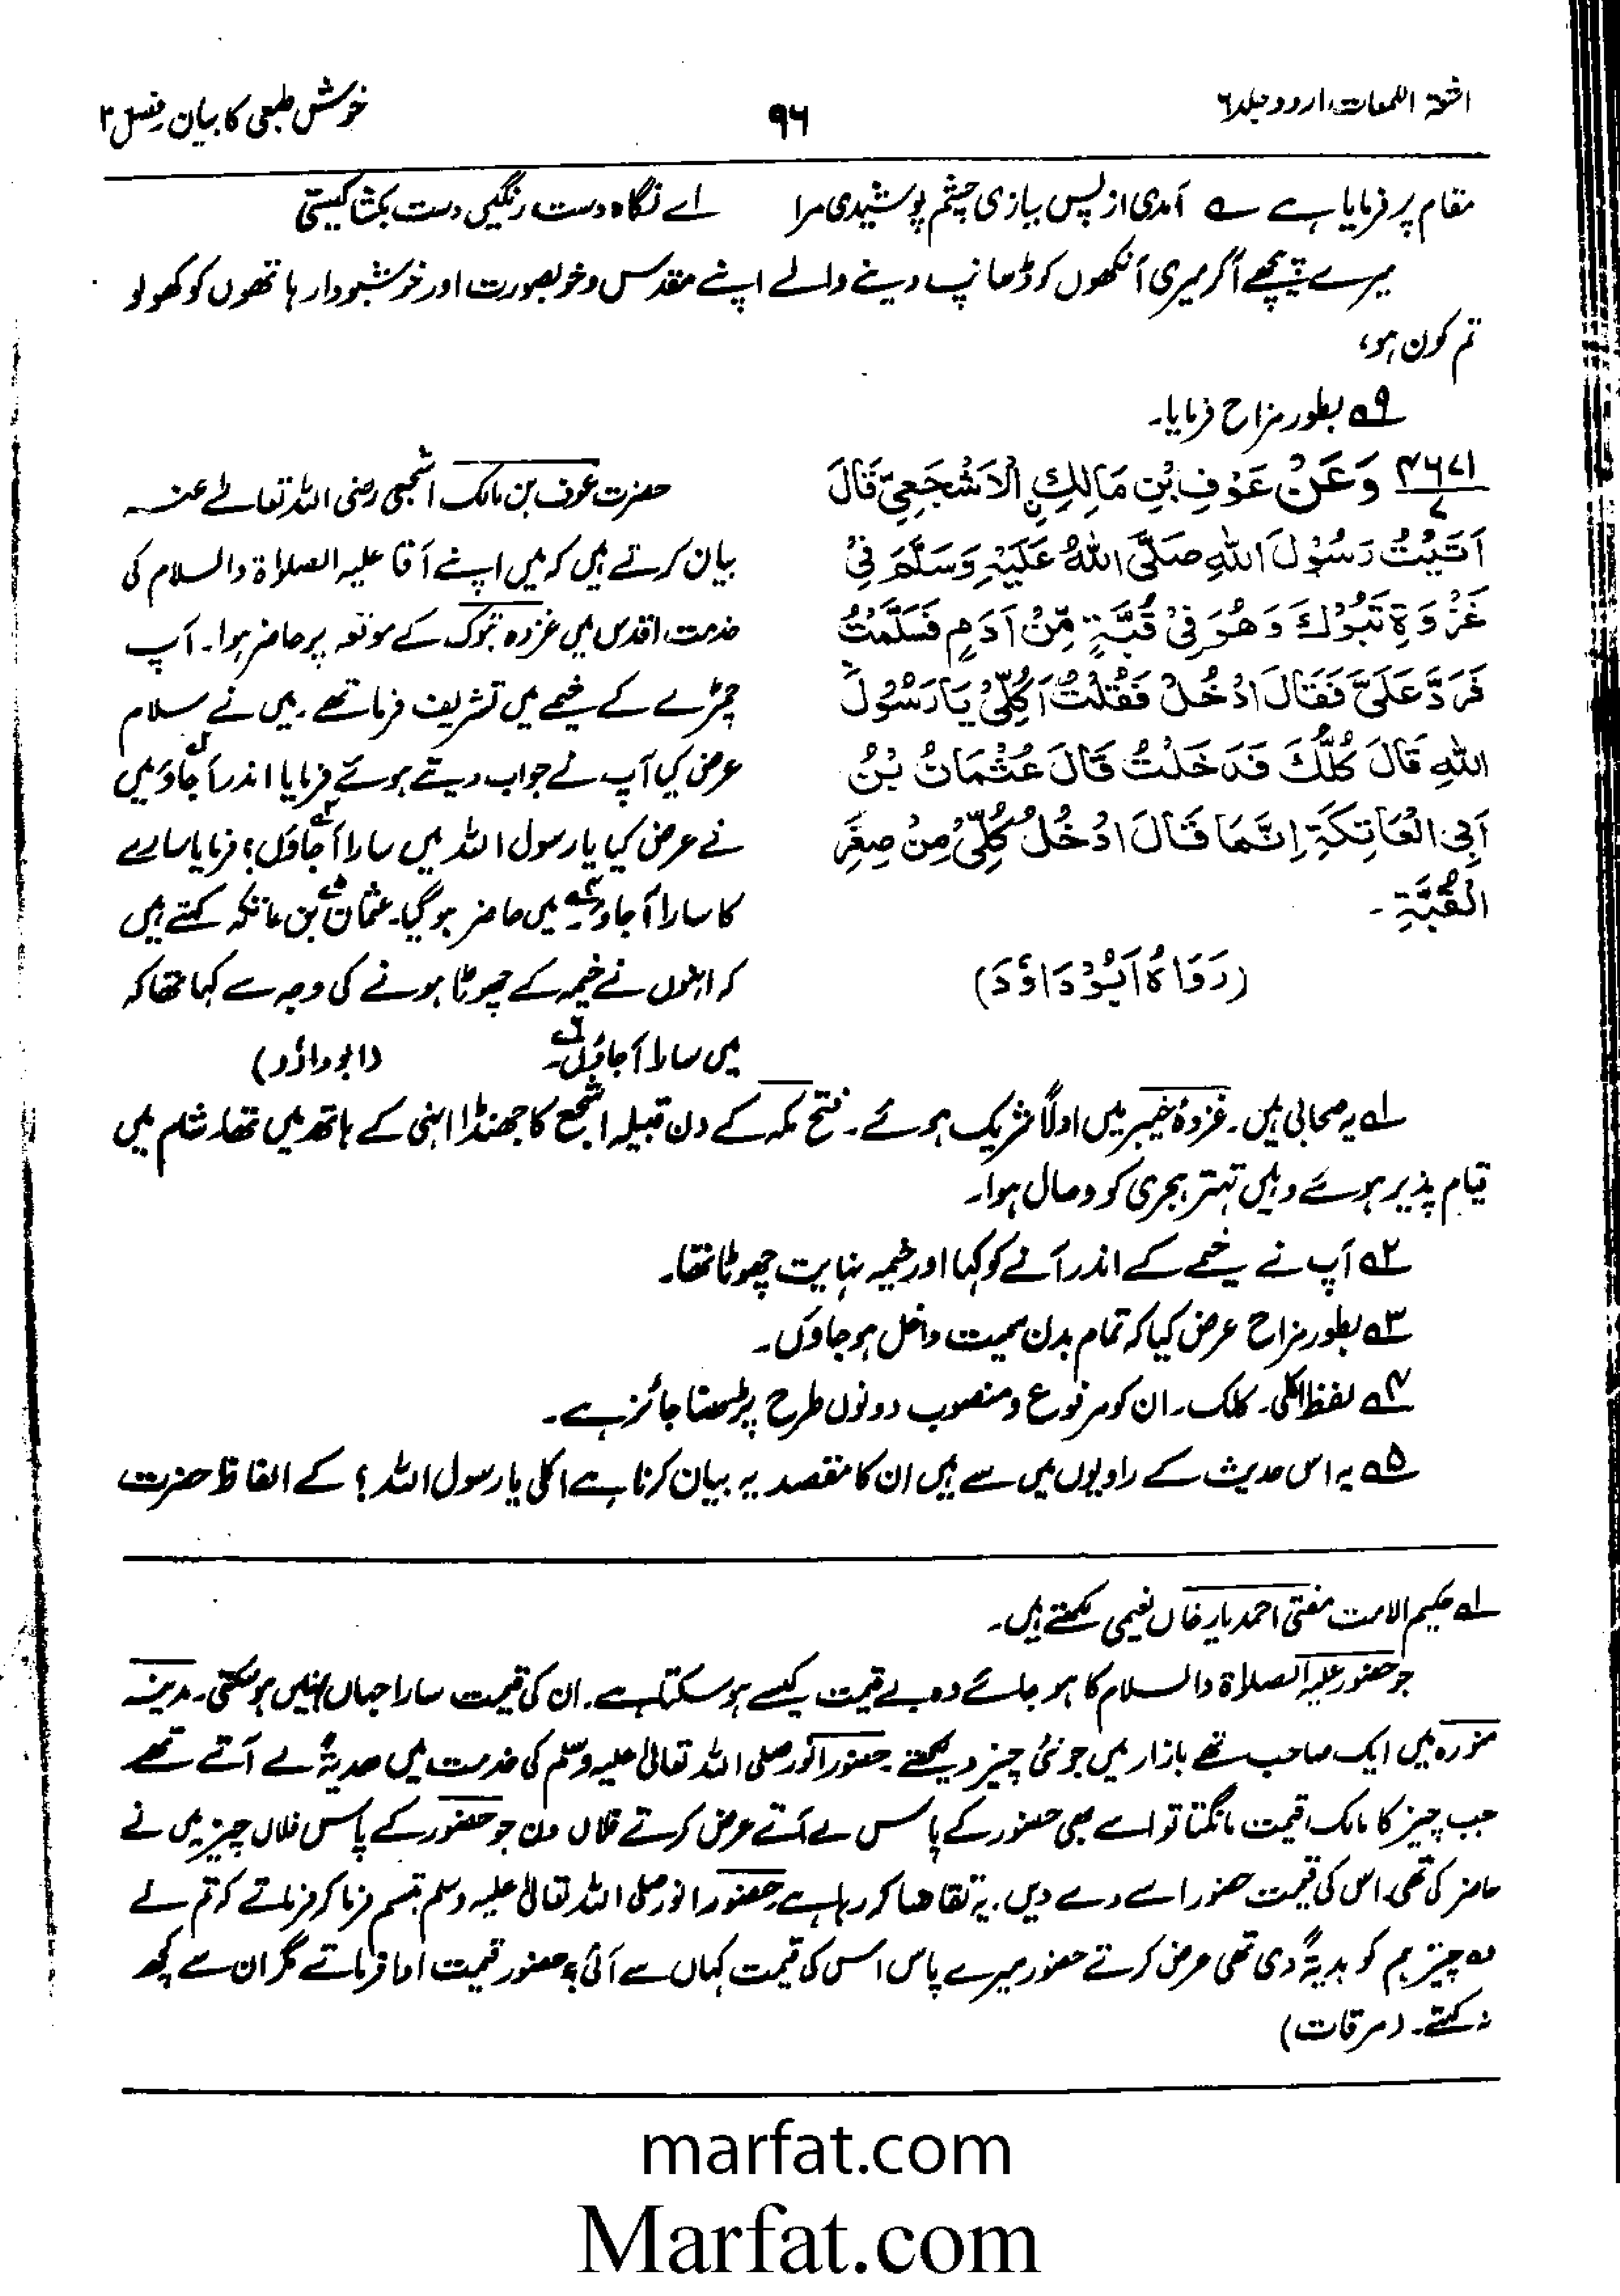 اشعۃ اللمعات، اردو جلد ۶
۹۶
خوش طبعی کا بیان فصل ۲
مقام پر فرمایا ہے ؎ آمدی از پس ببازی چشم پوشیدی مرا اے نگاہ دست رنگیں دست بکشا کیستی
میرے پیچھے آکر میری آنکھوں کو ڈھانپ دینے والے اپنے مقدس و خوبصورت اور خوشبودار ہاتھوں کو کھولو
تم کون ہو،
۹ے بطور مزاح فرمایا۔
۴۶۷۱
۷
وَعَنْ عَوْفِ بْنِ مَالِكِ نِ الْاَشْجَعِیِّ قَالَ
اَتَیْتُ رَسُوْلَ اللهِ صَلَّى اللهُ عَلَیْهِ وَسَلَّمَ فِیْ
غَزْوَةِ تَبُوْكَ وَهُوَ فِیْ قُبَّةٍ مِّنْ اَدَمٍ فَسَلَّمْتُ
فَرَدَّ عَلَیَّ فَقَالَ ادْخُلْ فَقُلْتُ اَكُلِّیْ یَا رَسُوْلَ
اللهِ قَالَ كُلُّكَ فَدَخَلْتُ قَالَ عُثْمَانُ بْنُ
اَبِی الْعَاتِكَةِ اِنَّمَا قَالَ ادْخُلُ كُلِّیْ مِنْ صِغَرِ
الْقُبَّةِ۔
(رَوَاهُ اَبُوْ دَاوٗدَ)
حضرت عوف بن مالک اشجعی رضی اللہ تعالٰے عنہ
بیان کرتے ہیں کہ میں اپنے آقا علیہ الصلاۃ والسلام کی
خدمت اقدس میں غزوہ تبوک کے موقعہ پر حاضر ہوا۔ آپ
چمڑے کے خیمے میں تشریف فرما تھے۔ میں نے سلام
عرض کی آپ نے جواب دیتے ہوئے فرمایا اندر آجاؤ۲ے میں
نے عرض کیا یا رسول اللہ میں سارا آجاؤں۳ے؟ فرمایا سارے
کا سارا آجاؤ۴ے میں حاضر ہوگیا۔ عثمان۵ے بن عاتکہ کہتے ہیں
کہ انہوں نے خیمہ کے چھوٹا ہونے کی وجہ سے کہا تھا کہ
میں سارا آجاؤں۶ے۔ (ابوداؤد)
۱ے یہ صحابی ہیں۔ غزوۂ خیبر میں اولاً شریک ہوئے۔ فتح مکہ کے دن قبیلہ اشجع کا جھنڈا انہی کے ہاتھ میں تھا۔ شام میں
قیام پذیر ہوئے وہیں تہتر ہجری کو وصال ہوا۔
۲ے آپ نے خیمے کے اندر آنے کو کہا اور خیمہ نہایت چھوٹا تھا۔
۳ے بطور مزاح عرض کیا کہ تمام بدن سمیت داخل ہو جاؤں۔
۴ے لفظ اکلی۔ کلک۔ ان کو مرفوع و منصوب دونوں طرح پڑھنا جائز ہے۔
۵ے یہ اس حدیث کے راویوں میں سے ہیں ان کا مقصد یہ بیان کرنا ہے اکلی یا رسول اللہ؟ کے الفاظ حضرت
۱ے حکیم الامت مفتی احمد یار خاں نعیمی لکھتے ہیں۔
جو حضور علیہ الصلاۃ والسلام کا ہو جائے وہ بے قیمت کیسے ہو سکتا ہے۔ ان کی قیمت سارا جہاں نہیں ہو سکتی۔ مدینہ
منورہ میں ایک صاحب تھے بازار میں جو نئی چیز دیکھتے۔ حضور انور صلی اللہ تعالیٰ علیہ وسلم کی خدمت میں ھدیۃً لے آتے تھے
جب چیز کا مالک قیمت مانگتا تو اسے بھی حضور کے پاس لے آتے عرض کرتے فلاں دن جو حضور کے پاس فلاں چیز میں نے
حاضر کی تھی۔ اس کی قیمت حضور اسے دے دیں۔ یہ تقاضا کر رہا ہے۔ حضور انور صلی اللہ تعالیٰ علیہ وسلم تبسم فرما کر فرماتے کہ تم نے
وہ چیز ہم کو ہدیۃً دی تھی عرض کرتے حضور میرے پاس اس کی قیمت کہاں سے آئی۔ حضور قیمت ادا فرماتے مگر ان سے کچھ
نہ کہتے۔ (مرقات)
marfat.com
Marfat.com